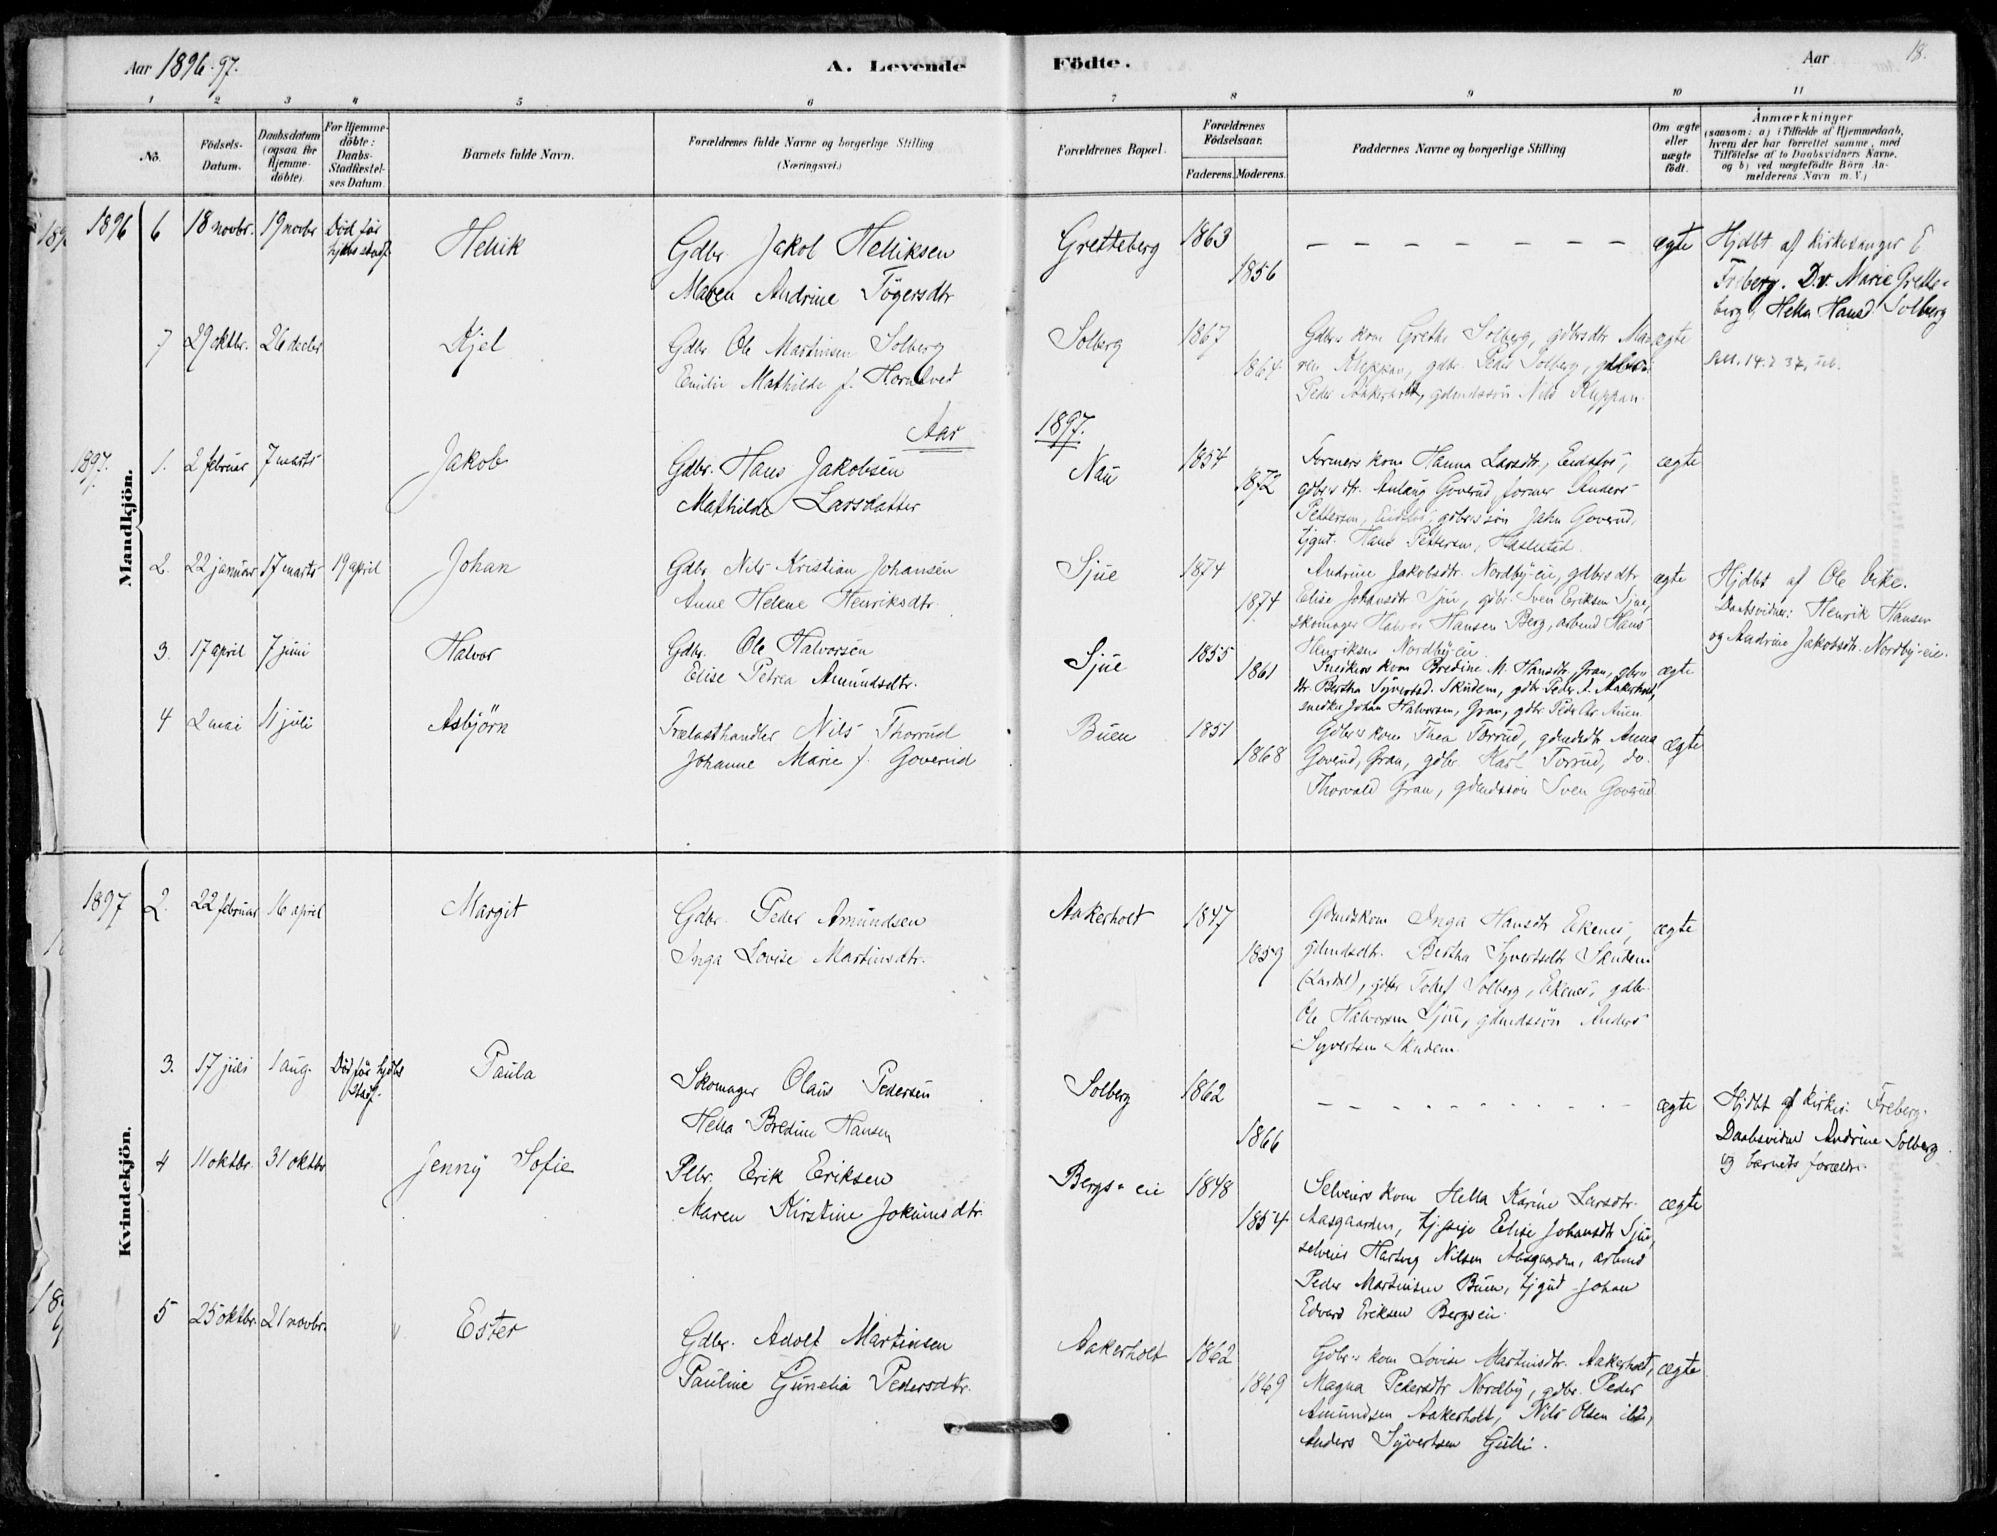 Aar 1896-97.
A. Levende Födte.
Aar 18
1 2 3 4 5 6 7 8 9 10 11
No.
Födsels-Datum.
Daabsdatum (ogsaa for Hjemmedöbte).
For Hjemmedöbte: Daabs-Stadfæstelses Datum
Barnets fulde Navn.
Forældrenes fulde Navne og borgerlige Stilling (Næringsvei.)
Forældrenes Bopæl.
Forældrenes Födselsaar.
Faderens. Moderens.
Faddernes Navne og borgerlige Stilling
Om ægte eller uægte födt.
Anmærkninger
(saasom: a) i Tilfælde af Hjemmedaab,
hvem der har forrettet samme, med
Tilföielse af to Daabsvidners Navne,
og b) ved uægtefödte Börn An-
melderens Navn m. V.)
Mandkjön.
1896 6 18 novbr. 19 novbr Död för hjdbs stadf. Helik
Gdbr. Jakob Heliksen
Maren Andrine Tögersdtr
Gretteberg 1863 1856
– – – – – – – –
ægte
Hjdbt af kirkesanger E.
Freberg. D.v. Marie Grette-
berg, Hella Hansd. Solberg
7 29 oktbr. 26 decbr Kjel
Gdbr. Ole Martinsen Solberg
Emilie Mathilde f. Horntvedt
Solberg 1867 1864
Gdbrs kom Grethe Solberg, gdbrsdtr Ma-
ren Kleppan, gdbr. Peder Solberg,
Peder Aakerholt, gdmdssön Nils Kleppan
ægte
Aar 1897.
1897. 1. 2 februar 7 marts Jakob
Gdbr. Hans Jakobsen
Mathilde Larsdatter
Nau 1854 1872
Formers kom Hanna Larsdtr., Eidsfos,
gdbrs dtr. Anlaug Goverud, former Anders
Pettersen, Eidsfos, gdbrs sön Jahn Goverud,
tjgut. Hans Pettersen, Haslestad.
ægte
2. 22 januar 17 marts 19 april Johan
Gdbr. Nils Kristian Johansen
Anne Helene Henriksdtr.
Sjue 1874 1874
Andrine Jakobsdtr. Nordby-eie, gdbrs dtr
Elise Johansdtr Sjue, gdbr. Sven Eriksen Sjue,
skomager Halvor Hansen Berg, arbmd Hans
Henriksen Nordby-eie.
ægte
Hjdbt af Ole Eike.
Daabsvidner: Henrik Hansen
og Andrine Jakobsdtr. Nordby-eie.
3. 17 april 7 juni Halvor
Gdbr. Ole Halvorsen
Elise Petrea Amundsdtr.
Sjue 1855 1861
Snedkers kom Bredine M. Hansdtr, Gran, gbrs
dtr. Bertha Syvertsd. Skudem, gdbr Peder A. Aakerholt,
snedker Johan Halvorsen, Gran, gdbr. Peder Chr. Auen
ægte
4 2 mai 11 juli Asbjörn
Trælasthandler Nils Thorrud
Johanne Marie f. Goverud
Buen 1851 1868
Gdbrs kom Thea Torrud, gdmdsdtr Anna
Goverud, Gran, gdbr Karl Torrud, do.
Thorvald Gran, gdmdssön Sven Goverud
ægte
Kvindekjön.
1897 2. 22 februar 16 april Margit
Gdbr. Peder Amundsen
Inga Lovise Martinsdtr.
Aakerholt 1847 1859
Gdmdskom Inga Hansdtr Ekenes,
gdmdsdtr. Bertha Syvertsdtr Skudem
(Lardal), gdbr Tolef Solberg, Ekenes, gdbr.
Ole Halvorsen Sjue, gdmdssön Anders
Syvertsen Skudem.
ægte
3. 17 juli 1 aug. Död för hjdbs stadf. Paula
Skomager Olaus Pedersen
Hella Bredine Hansen
Solberg 1862 1866
– – – – – – – –
ægte
Hjdbt af kirkes. Freberg.
Daabsvidner Andrine Solberg
og barnets forældre.
4 11 oktbr. 31 oktbr Jenny Sofie
Plbr. Erik Eriksen
Maren Kirstine Jokumsdtr.
Bergs-eie 1848 1854
Selveiers kom Hella Karine Larsdtr.
Aasgaarden, tj.pige Elise Johansdtr Sjue,
selveier Hartvig Nilsen Aasgaarden, arbmd
Peder Martinsen Buen, tjgut Johan
Edvard Eriksen Bergseie.
ægte
5 25 oktbr. 21 novbr. Ester
Gdbr. Adolf Martinsen
Pauline Gunelia Pedersdtr.
Aakerholt 1862 1869
Gdbrs kom Lovise Martinsdtr. Aakerholt,
Magna Pedersdtr Nordby, gdbr. Peder
Amundsen Aakerholt, Nils Olsen ibd.,
Anders Syvertsen Gulli.
ægte